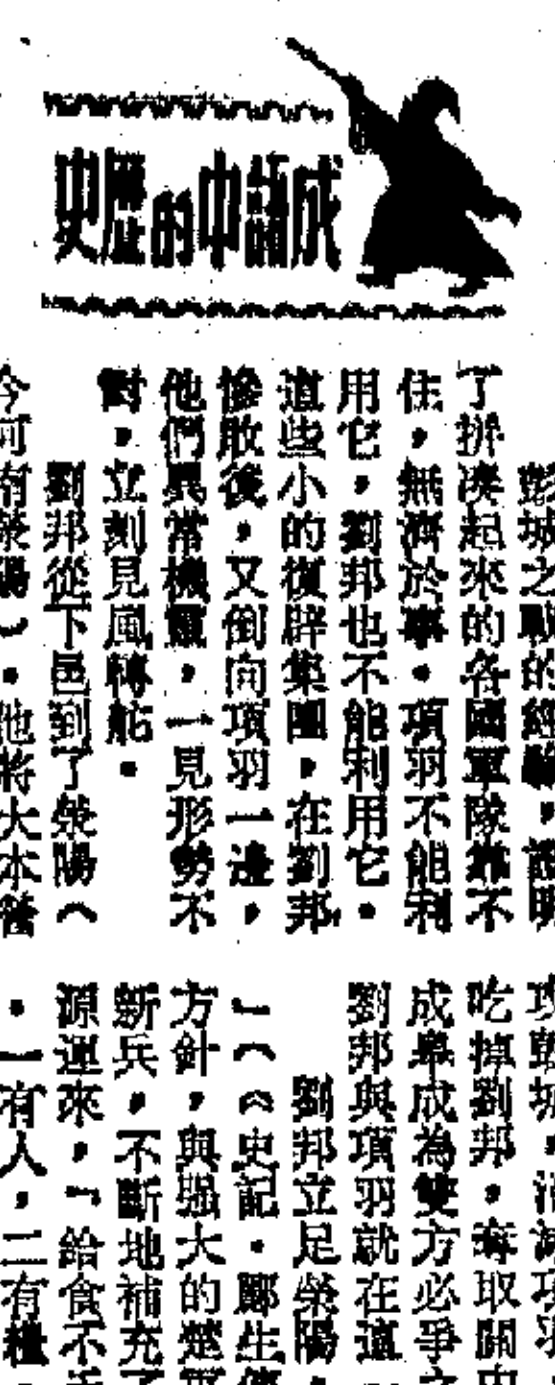 成語中的歷史
彭城之戰的經驗，證明
了拼凑起來的各國軍隊靠不
住，無濟於事。項羽不能利
用它，劉邦也不能利用它。
這些小的復辟集團，在劉邦
慘敗後，又倒向項羽一邊，
他們異常機靈，一見形勢不
對，立刻見風轉舵。
劉邦從下邑到了滎陽（
今河南滎陽）。他將大本營
吃掉劉邦，奪取關中
成皋成為雙方必爭之
劉邦與項羽就在這
劉邦立足滎陽，
」（《史記·酈生傳
方針，與强大的楚軍
新兵，不斷地補充了
源運來，「給食不
。一有人，二有糧，